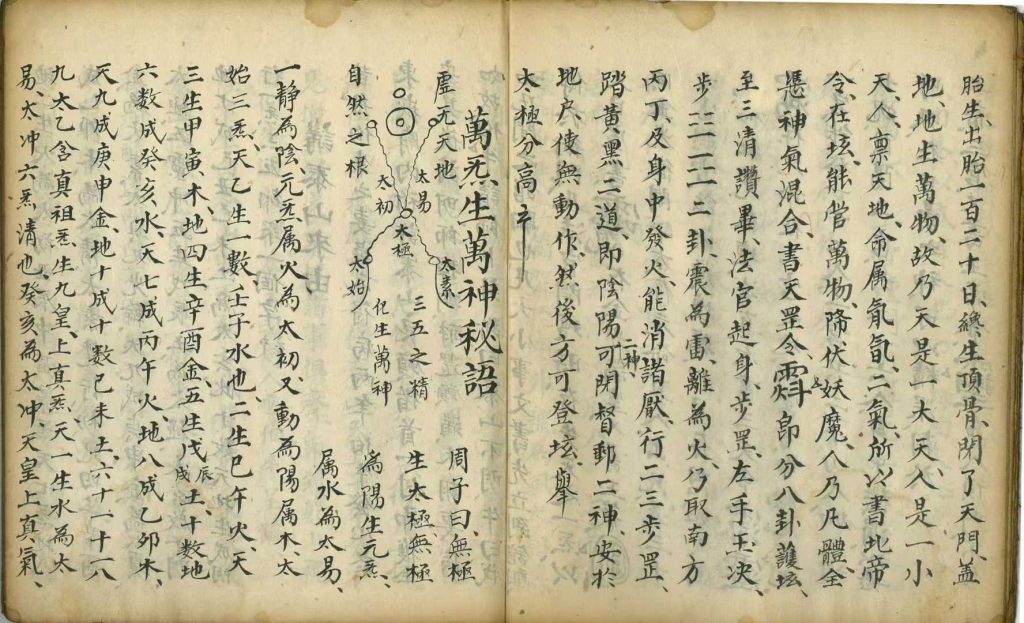 胎生、出胎一百二十日、纔生頂骨、閉了天門、蓋
地、地生萬物、故乃天是一大天、人是一小
天、人禀天地、命属氤氲二氣、所以書北帝
令、在坛、能管萬物、降伏妖魔、人乃凡體、全
憑神氣混合、書天罡令、昂分八卦護坛、
至三清讚畢、法官起身、步罡、左手玉决、
步二二卦、震為雷、離為火、乃取南方
丙丁、及身中發火、能消諸厭、行二三步罡、
二神
踏黃黑二道、即陰陽可閉督郵二神、安於
地户、使無動作、然後方可登坛、舉
太極分高
萬炁生萬神秘語
虛无天地
自然之根
太易
太初
太極
太素
太始
三五之精
化生萬神
周子曰、無極
生太極、無極
為陽、生元炁、
属水、為太易、
一靜為陰、元炁属火、為太初、又動為陽、属木、太
始三炁、天乙生一數壬子水也、二生巳午火、天
三生甲寅木、地四生辛酉金、五生戊辰戌土、十數地
六數成癸亥水、天七成丙午火、地八成乙卯木、
天九成庚申金、地十成十數己未土、六十一、十一八
九太乙含真祖炁、生九皇、上真炁、天一生水為太
易、太冲六炁清也、癸亥為太冲、天皇上真氣、